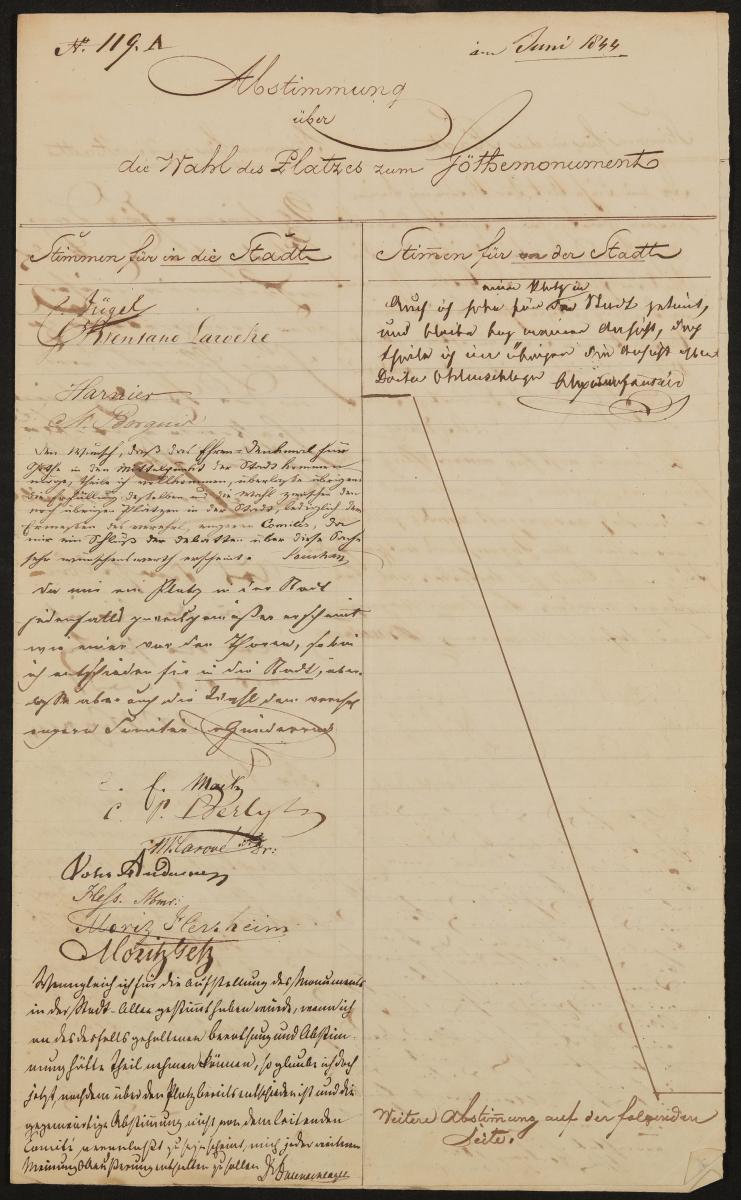 N. 119. A
am Juni 1844
Abstimmung
über
die Wahl des Platzes zum Göthemonument
Stimmen für in die Stadt
Jügel
Brentano Laroche
Harnier
Den Wunsch, daß das Ehren-Denkmal für
Göthe in den Mittelpunkt der Stadt kommen
möge, theile ich vollkommen, überlaße übrigens
die Erfüllung desselben und die Wahl zwischen den
noch übrigen Plätzen in der Stadt, lediglich dem
Ermessen des verehrl. engeren Comités, da
mir ein Schluß der Debatten über diese Sache
sehr wünschenswerth erscheint.
Da mir ein Platz in der Stadt
jedenfalls zweckgemäßer erscheint
wie einer vor den Thoren, so bin
ich entschieden für in die Stadt, über-
lasse aber auch die Wahl dem verehrl
engern Comitée Günderrode
C. P. Oberlyn
M. Carové Dr:
Hess.
Moriz Flersheim
Moritz Getz
Wenngleich ich für die Aufstellung des Monuments
in der Stadt-Allee gestimmt haben würde, wenn ich
an der desfalls gehaltenen Berathung und Abstim-
mung hätte Theil nehmen können, so glaube ich doch
jetzt, nachdem über den Platz bereits entschieden ist und die
gegenwärtige Abstimmung nicht von dem leitenden
Comité veranlaßt zu sein scheint, mich jeder weiteren
Meinungs-Äußerung enthalten zu sollen
Stimen für der Stadt
einen Platz in
Auch ich habe für der Stadt gestimt,
und bleibe bey meiner Ansicht, doch
theile ich im übrigen die Ansicht
Doctor Ohlenschlager
Weitere Abstimung auf der folgenden
Seite.